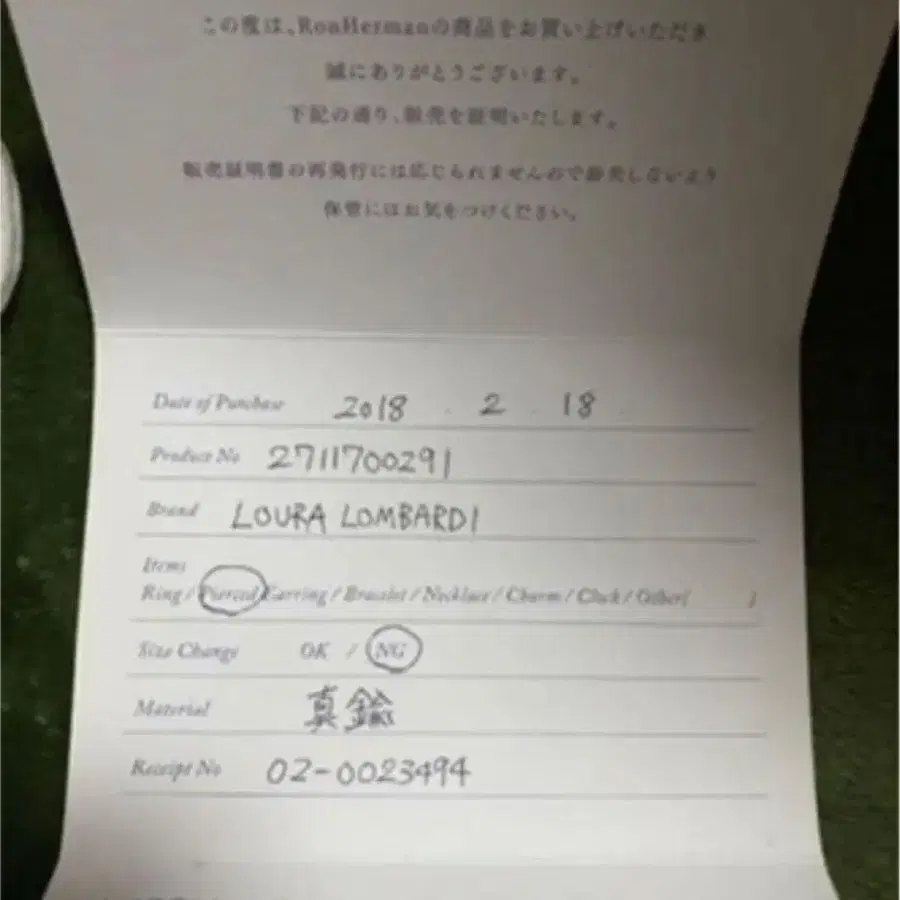 この度は、RonHermanの商品をお買い上げいただき
誠にありがとうございます。
下記の通り、販売を証明いたします。
販売証明書の再発行には応じられませんので紛失しないよう
保管にはお気をつけください。
Date of Purchase 2018 . 2 . 18
Product No 2711700291
Brand LOURA LOMBARDI
Items
Ring / Pierced Earring / Bracelet / Necklace / Charm / Clock / Other( )
Size Change OK / NG
Material 真鍮
Receipt No 02-0023494